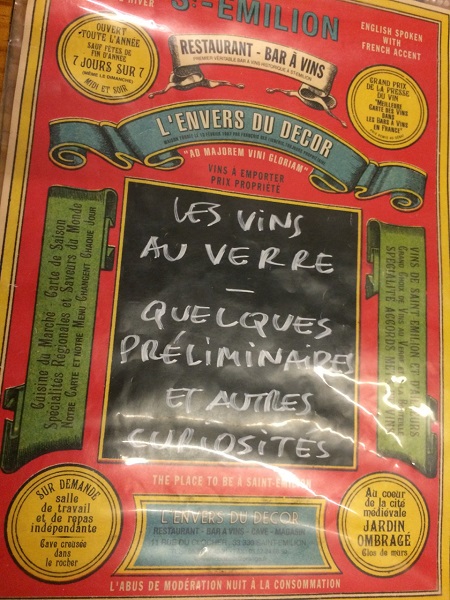 ST-EMILION
OUVERT
TOUTE L'ANNÉE
SAUF FÊTES DE
FIN D'ANNÉE
7 JOURS SUR 7
(MÊME LE DIMANCHE)
MIDI ET SOIR
ENGLISH SPOKEN
WITH
FRENCH ACCENT
RESTAURANT - BAR À VINS
GRAND PRIX
DE LA PRESSE
DU VIN
"MEILLEURE
CARTE DES VINS
DANS
LES BARS À VINS
EN FRANCE"
L'ENVERS DU DECOR
"AD MAJOREM VINI GLORIAM"
VINS À EMPORTER
PRIX PROPRIÉTÉ
LES VINS
AU VERRE
—
QUELQUES
PRÉLIMINAIRES
ET AUTRES
CURIOSITÉS
Cuisine du Marché Carte de Saison
Spécialités Régionales et Saveurs du Monde
NOTRE CARTE ET NOTRE MENU CHANGENT CHAQUE JOUR
VINS DE SAINT EMILION ET
GRAND CHOIX DE VINS AU VERRE
SPÉCIALITÉ ACCORDS METS
THE PLACE TO BE À SAINT-EMILION
SUR DEMANDE
salle
de travail
et de repas
indépendante
Cave creusée
dans le
rocher
L'ENVERS DU DECOR
RESTAURANT - BAR À VINS - CAVE - MAGASIN
Au coeur
de la cité
médiévale
JARDIN
OMBRAGÉ
Clos de murs
L'ABUS DE MODÉRATION NUIT À LA CONSOMMATION